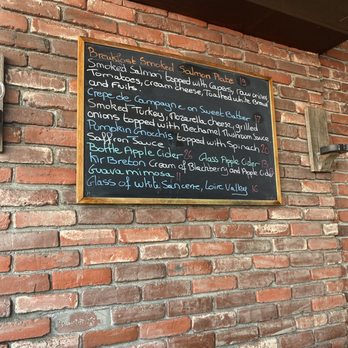 Breakfast Smoked Salmon Plate 19
Smoked Salmon topped with Capers, raw onion
Tomatoes, Cream cheese, Toasted white Bread
and Fruits.
Crepe de Campagne on Sweet Batter 17
Smoked Turkey, Mozarella cheese, grilled
onions topped with Bechamel Thuinson Sauce
Pumpkin Gnochis topped with Spinach
Saffron Sauce
Bottle Apple Cider 26 Glass Apple Cider 13
Kir Breton Cream of Blackberry and Apple Cider
Guava mimosa 11
Glass of white Sancerre, Loire Valley 16